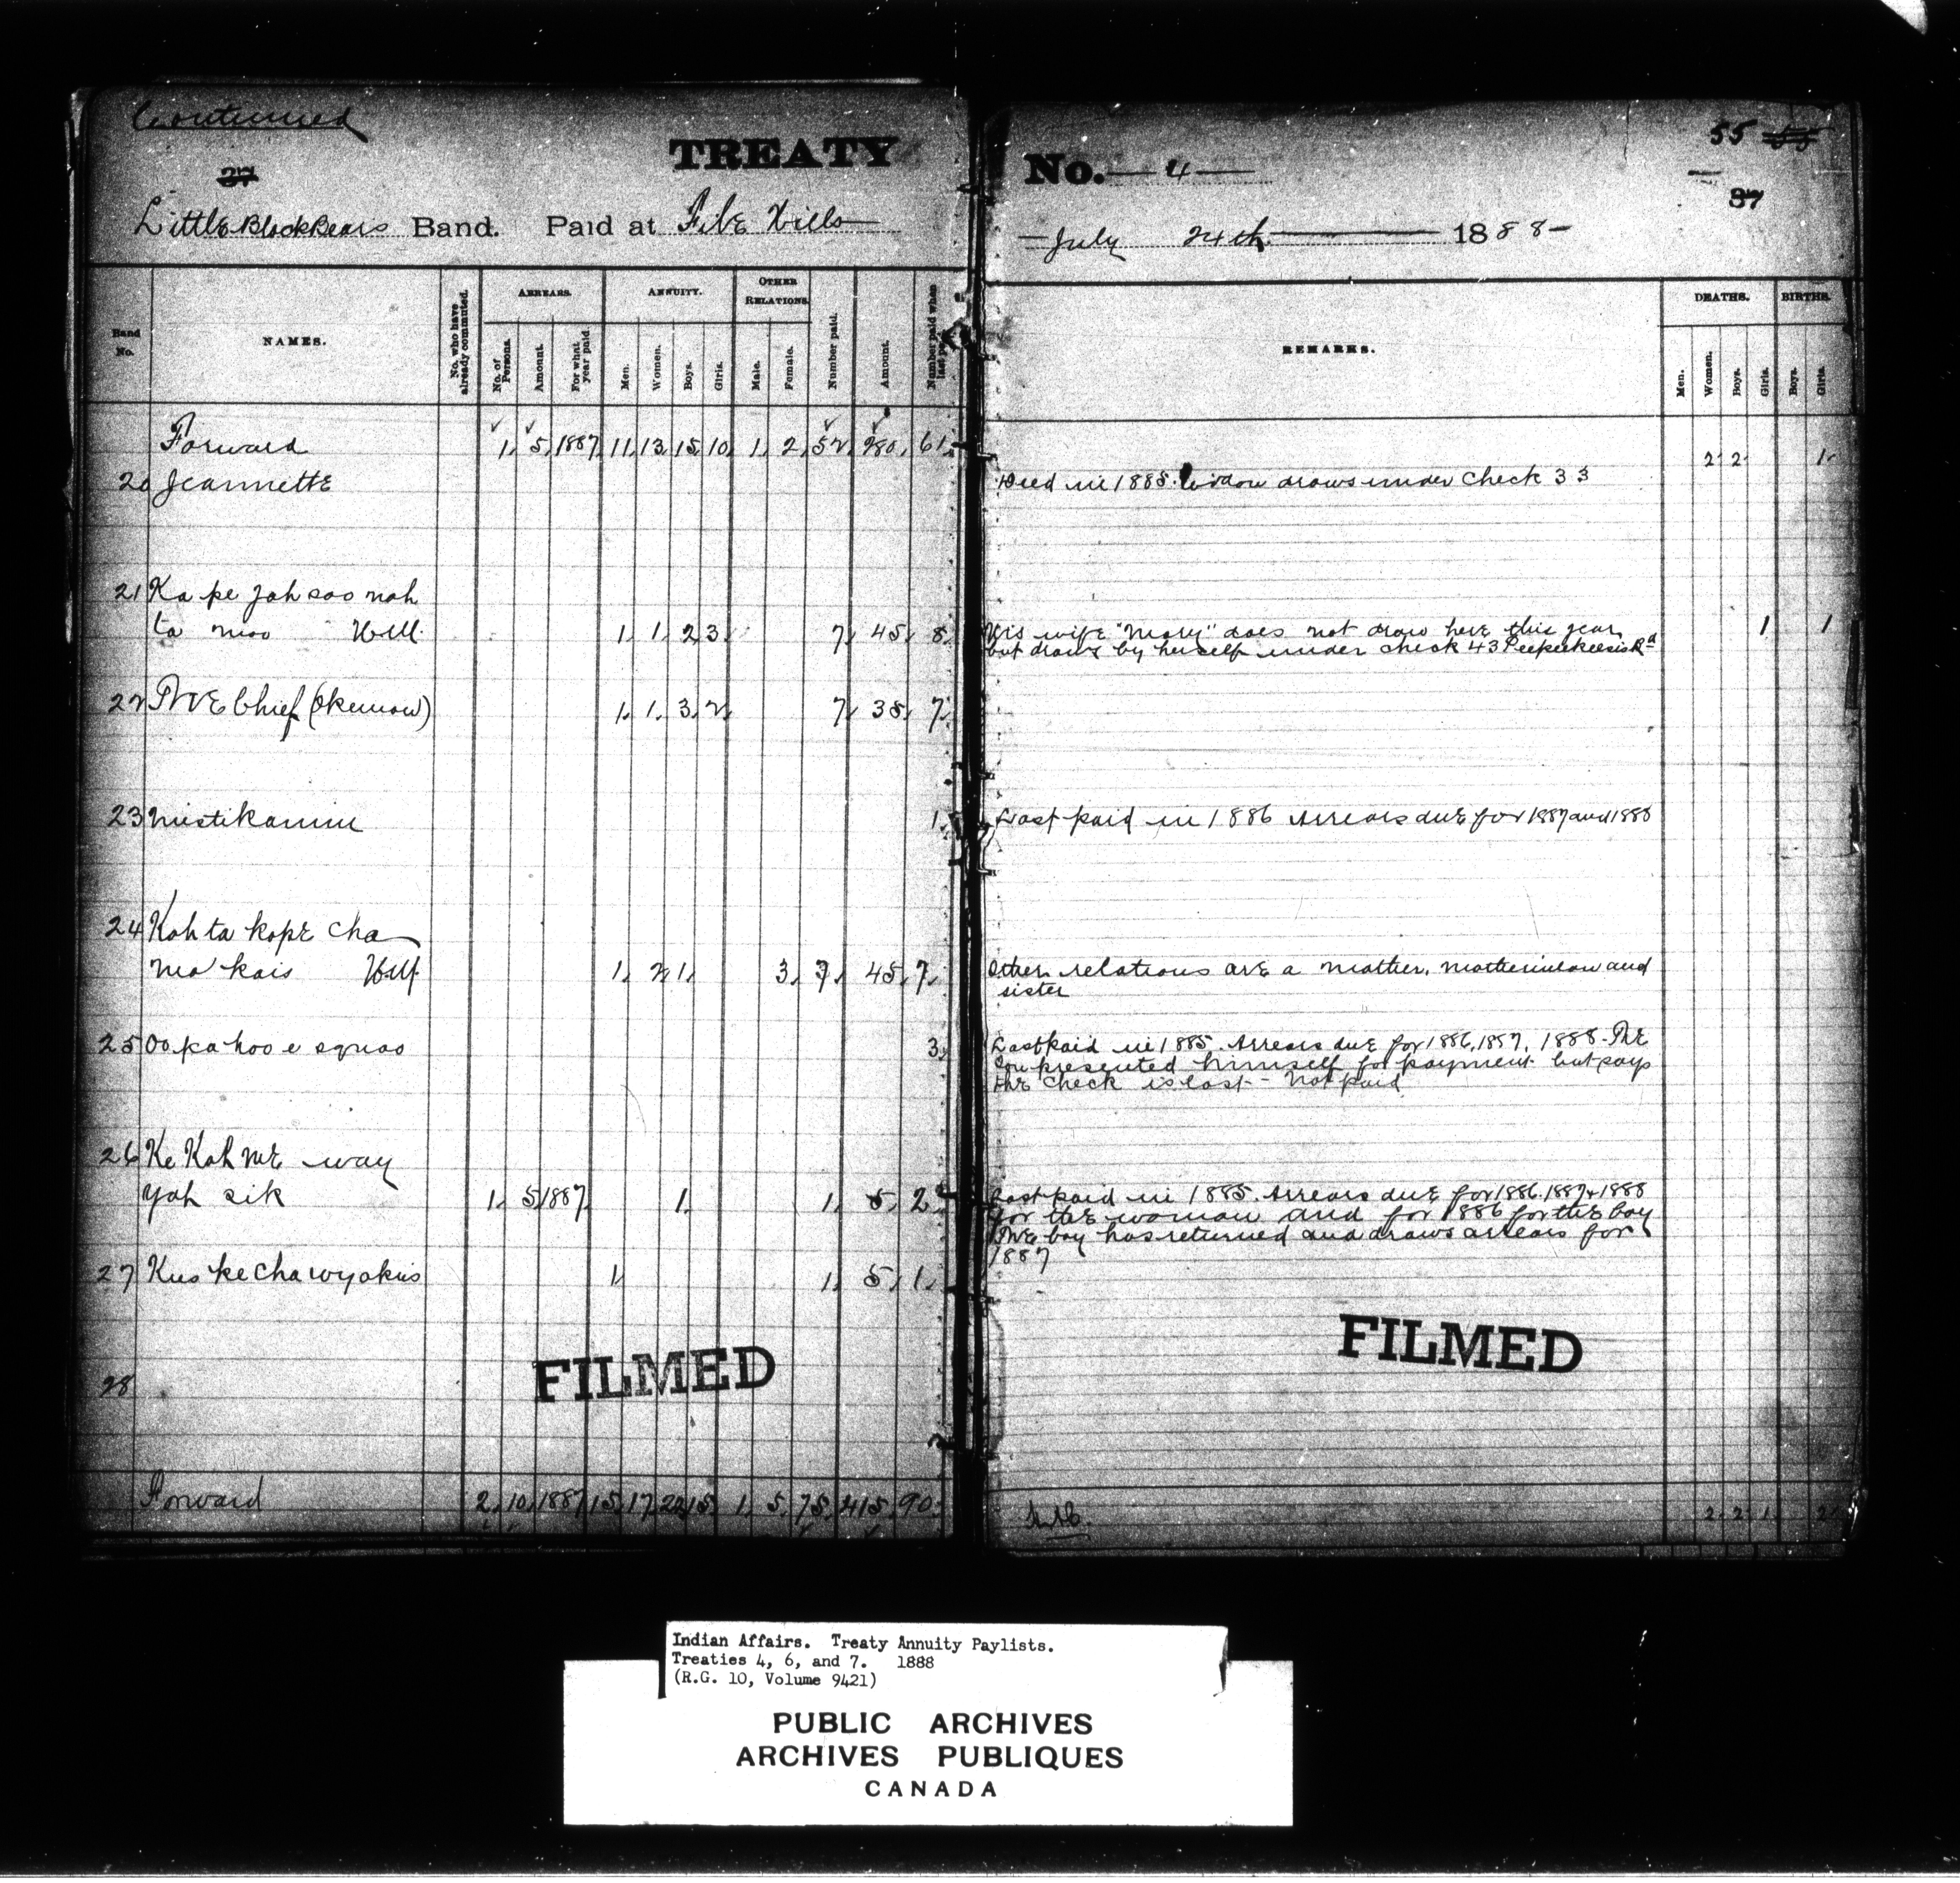 Continued
37
TREATY
Little Black Bears Band. Paid at File Hills
Band No.
NAMES.
No. who have already commuted.
ARREARS.
No. of Persons.
Amount.
For what year paid.
ANNUITY.
Men.
Women.
Boys.
Girls.
OTHER RELATIONS.
Male.
Female.
Number paid.
Amount.
Number paid when last paid.
Forward 1 5 1887 11 13 15 10 1 2 52 280 61
20 Jeannette
21 Ka pe jah soo nah
ta moo 1 1 2 3 7 45 8
22 The Chief (Okemow) 1 1 3 2 7 35 7
23 Mistikamin 1
24 Kah ta kope cha
ma kais 1 2 1 3 7 45 7
25 Oo ka hoo e squao 3
26 Ke Kah me way
yah sik 1 5 1887 1 1 5 2
27 Kus ke cha wyakus 1 1 5 1
28
FILMED
Forward 2 10 1887 15 17 22 15 1 5 75 415 90
No. 4
55 55
37
July 24th 1888
REMARKS.
DEATHS.
Men.
Women.
Boys.
Girls.
BIRTHS.
Boys.
Girls.
2 2 1
Died in 1885. Widow draws under check 33
His wife "Mary" does not draw here this year 1 1
but draws by herself under check 43 Peepeekeesis Rd
Last paid in 1886 Arrears due for 1887 and 1888
Other relations are a mother, motherinlaw and
sister
Last paid in 1885. Arrears due for 1886, 1887, 1888 - The
Son presented himself for payment but says
the check is lost - Not paid
Last paid in 1885. Arrears due for 1886. 1887 & 1888
for the woman and for 1886 for the boy
The boy has returned and draws arrears for
1887
FILMED
2 2 1 2
Indian Affairs. Treaty Annuity Paylists.
Treaties 4, 6, and 7. 1888
(R.G. 10, Volume 9421)
PUBLIC ARCHIVES
ARCHIVES PUBLIQUES
CANADA